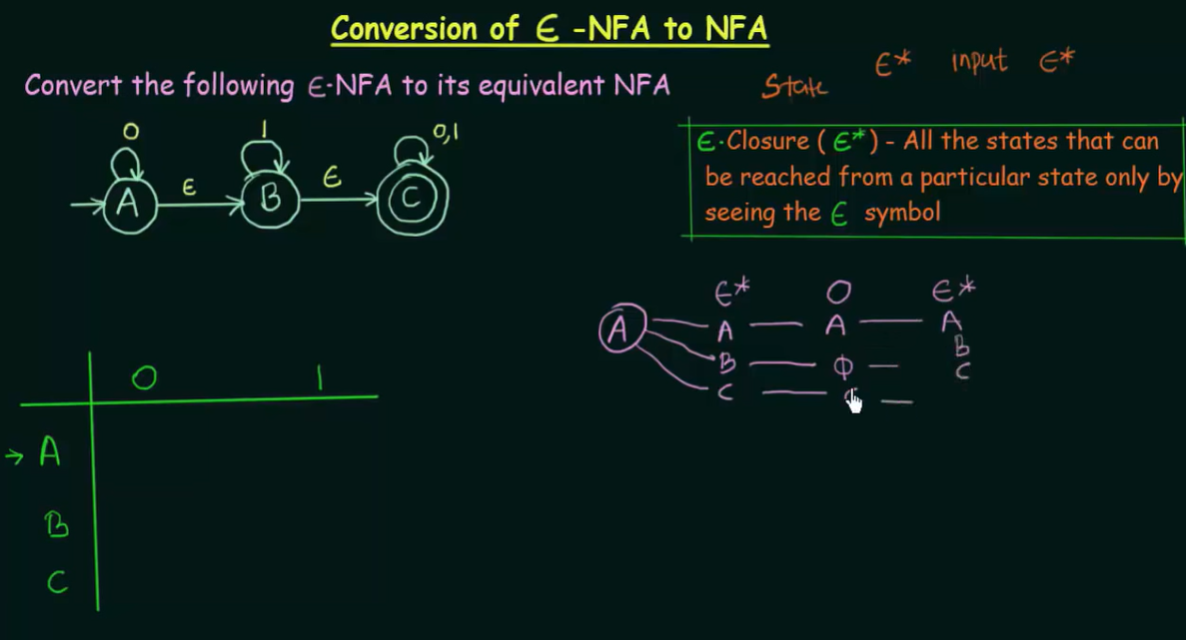 Conversion of ϵ -NFA to NFA
Convert the following ϵ-NFA to its equivalent NFA
State ϵ* input ϵ*
ϵ-Closure ( ϵ* ) - All the states that can
be reached from a particular state only by
seeing the ϵ symbol
0 1 0,1
A ϵ B ϵ C
ϵ* 0 ϵ*
A A A A
B
B Φ
C
C
0 1
A
B
C